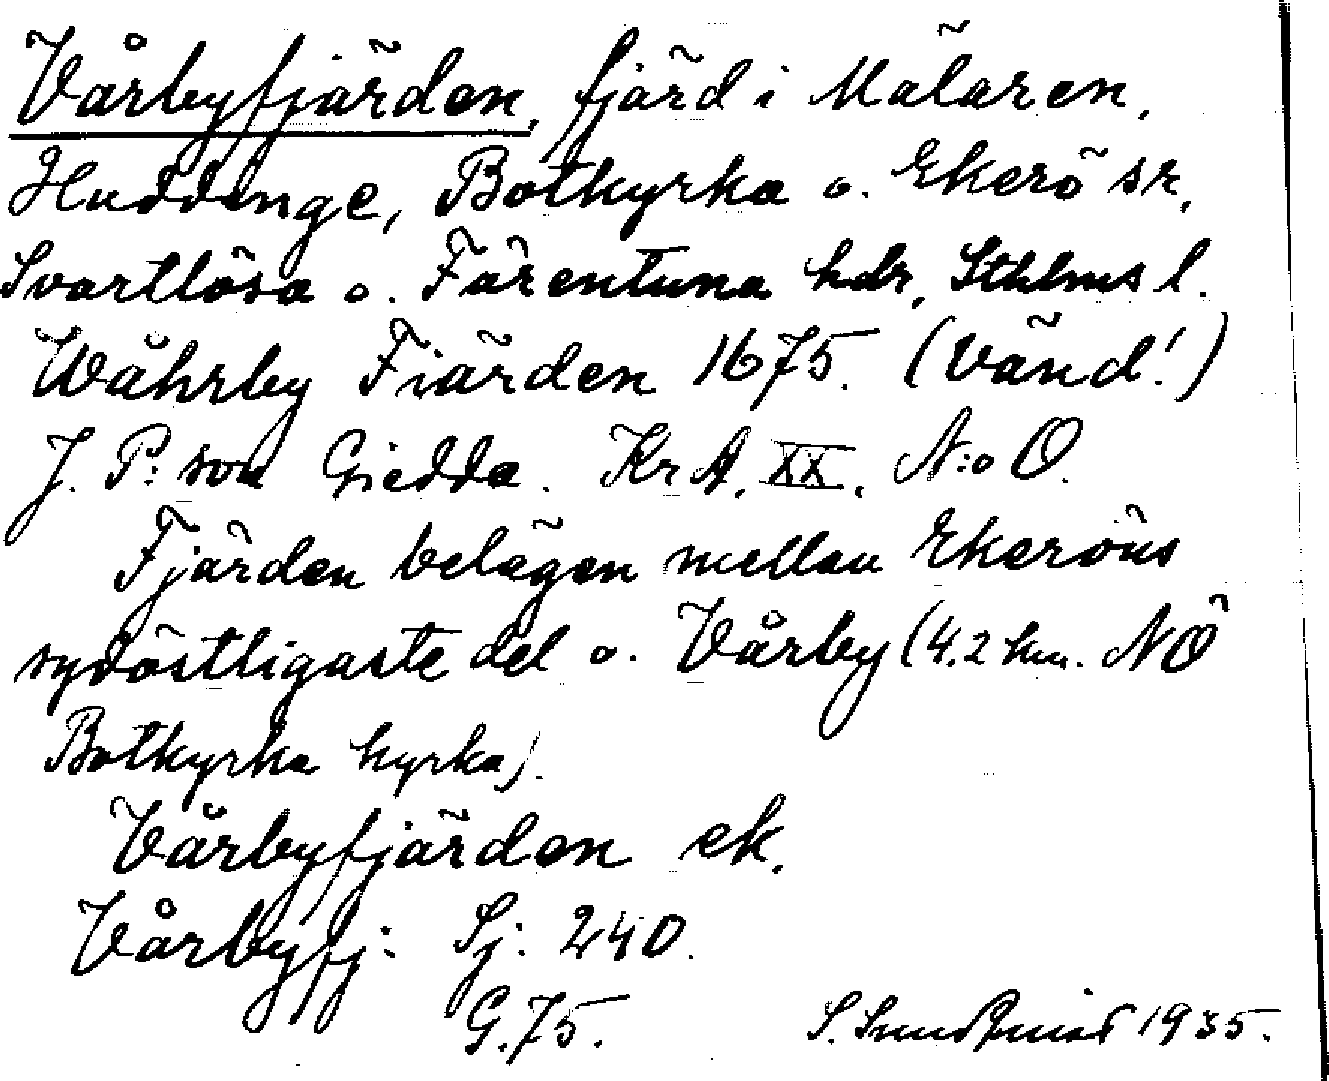 Vårbyfjärden, fjärd i Mälaren,
Huddinge, Botkyrka o. Ekerö sr,
Svartlösa o. Färentuna hdr, Sthlms l.
Wåhrby Fiärden 1675. (Vänd!)
J. P:son Giedda. Kr A. XX. N:o O.
Fjärden belägen mellan Ekeröns
sydöstligaste del o. Vårby (4.2 km. NÖ
Botkyrka kyrka).
Vårbyfjärden ek.
Vårbyfj: Sj. 240.
G.75. S. Sundquist 1935.